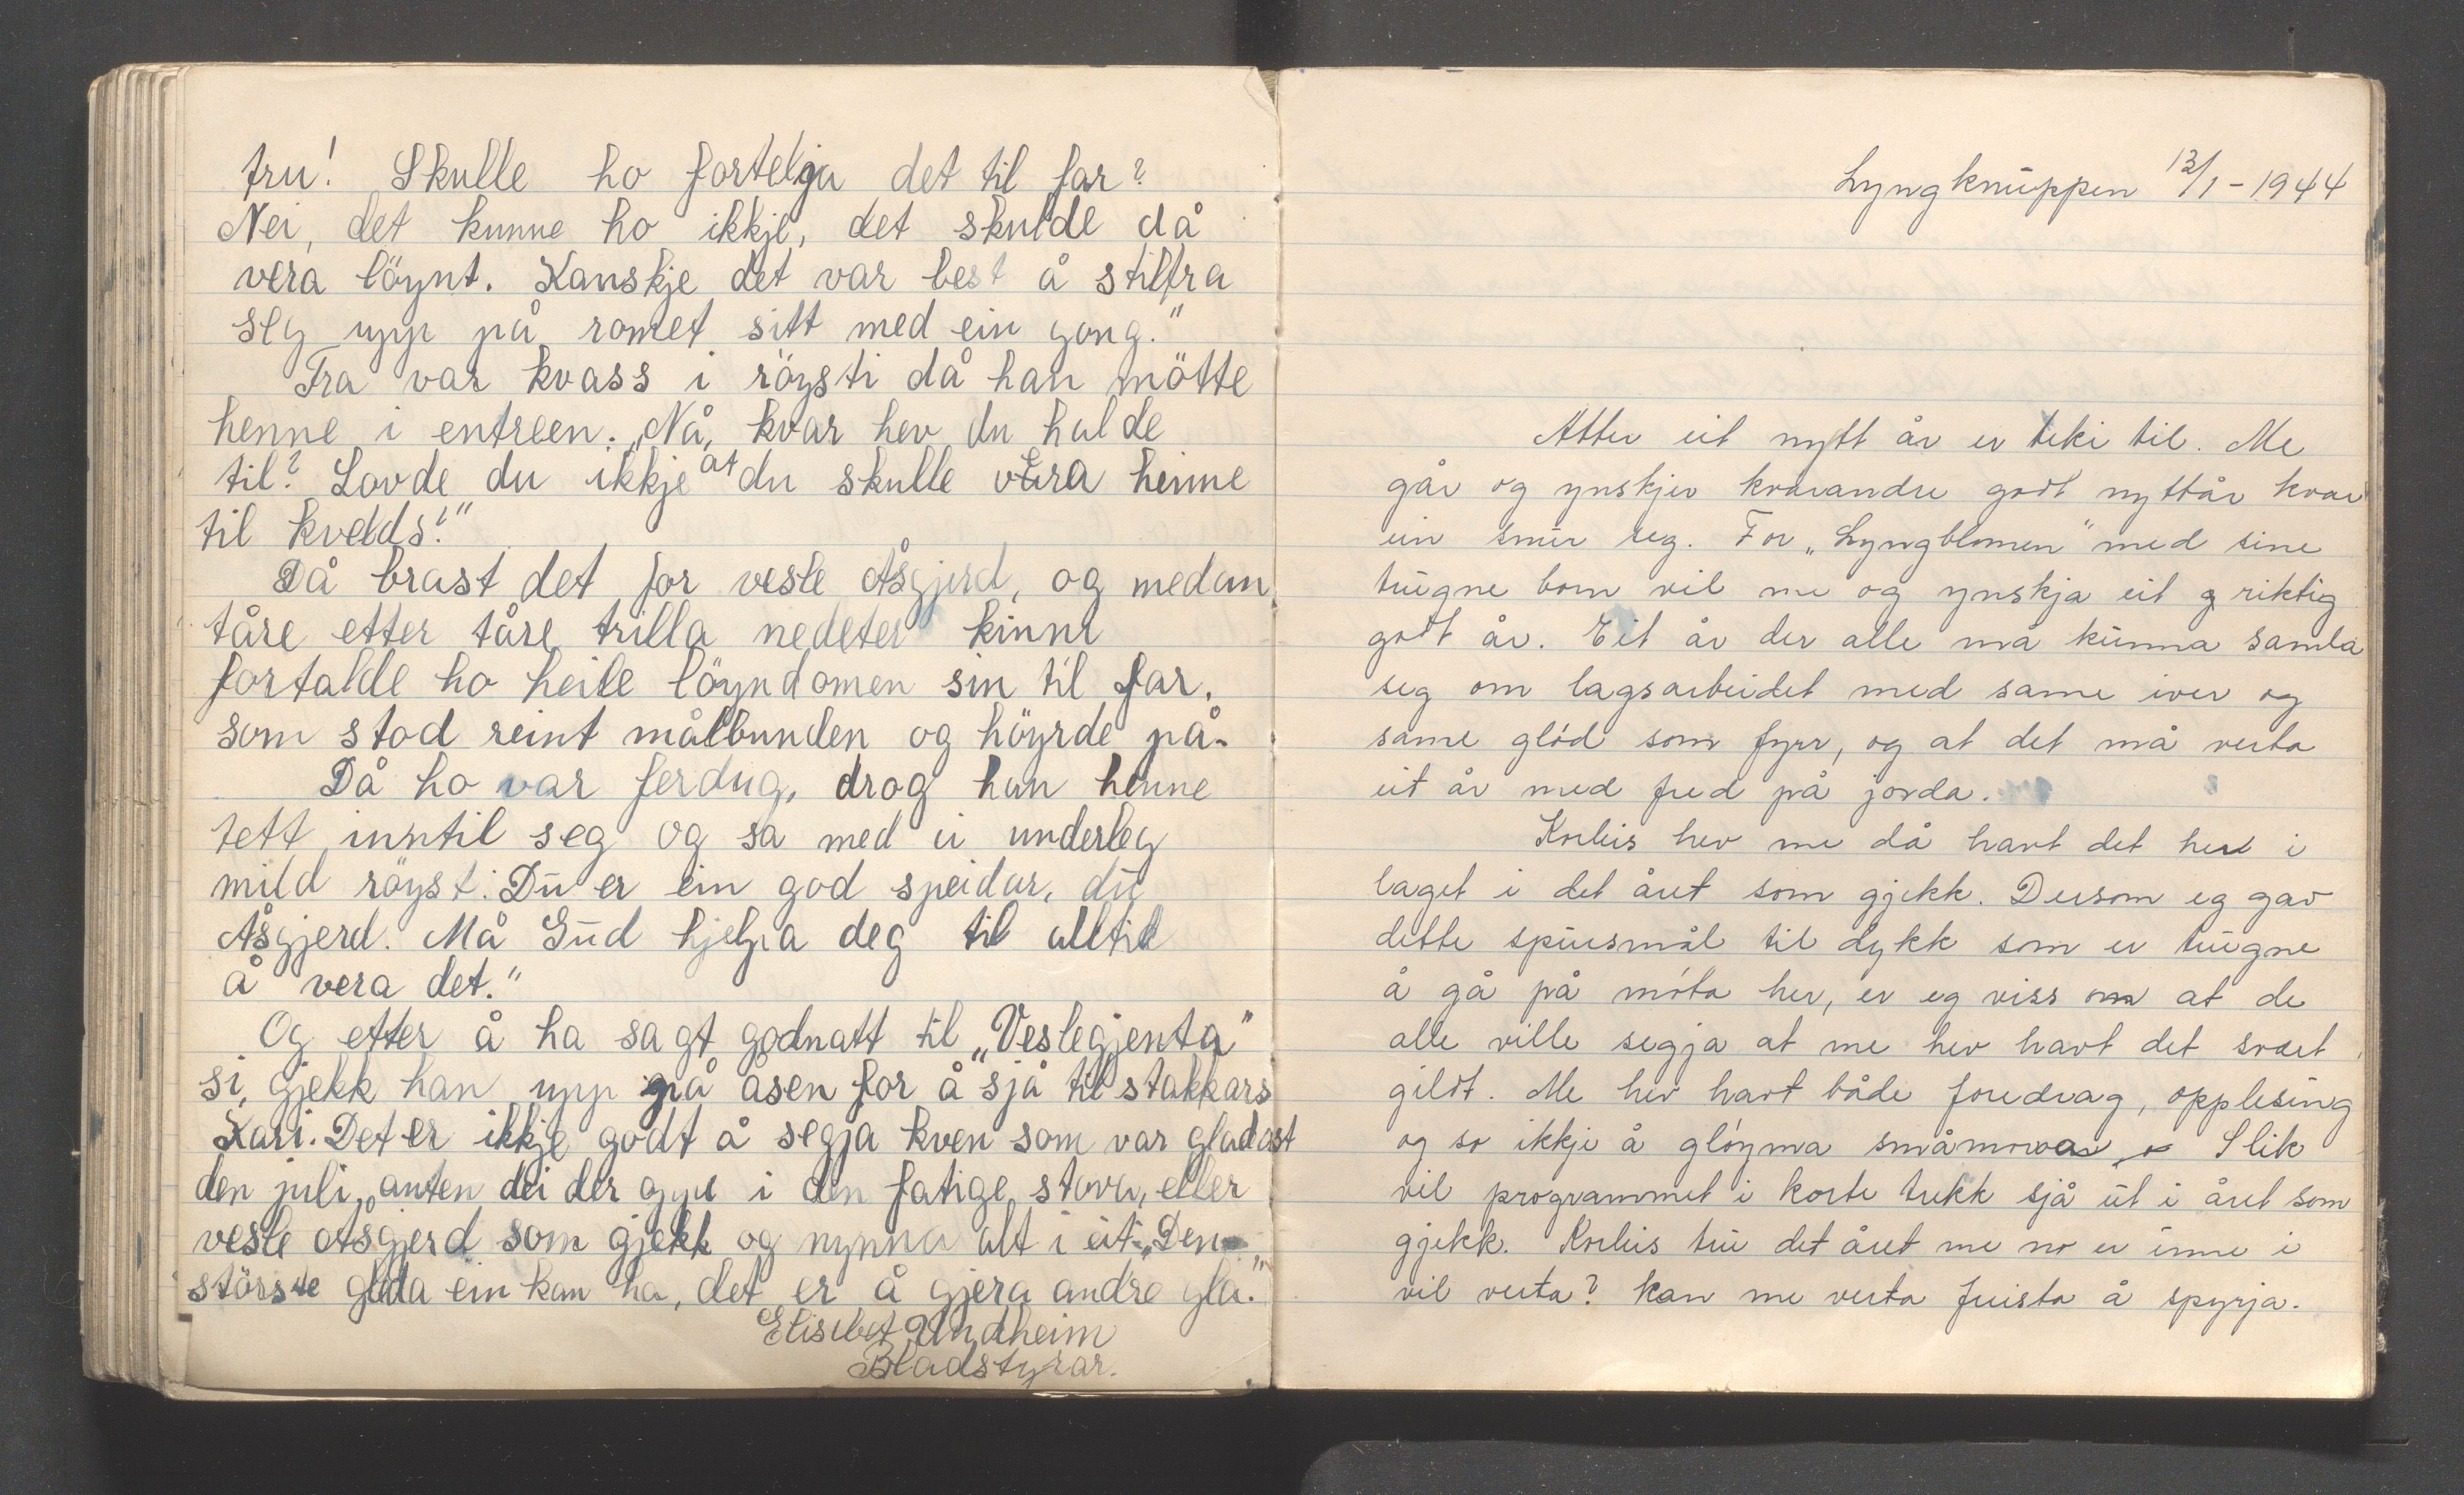 tru! Skulle ho fortelja det til far?
Nei, det kunne ho ikkje, det skulde då
vera löynt. Kanskje det var best å stiltra
seg upp på romet sitt med ein gong."
Fra var kvass i röysti då han mötte
henne i entreen. „Nå, kvar hev du halde
til? Lovde du ikkje at du skulle vera heime
til kvelds?"
Då brast det for vesle Åsgjerd, og medan
tåre etter tåre trilla nedeter kinni
fortalde ho heile löyndomen sin til far,
som stod reint målbunden og höyrde på.
Då ho var ferdug, drog han henne
tett inntil seg og sa med ei underleg
mild röyst: Du er ein god speidar, du
Åsgjerd. Må Gud hjelpa deg til alltid
å vera det."
Og etter å ha sagt godnatt til „Veslegjenta"
si, gjekk han upp på åsen for å sjå til stakkars
Kari. Det er ikkje godt å segja kven som var gladast
den juli, anten dei der uppe i den fatige stova, eller
vesle Åsgjerd som gjekk og nynna alt i eit: „Den
störste gleda ein kan ha, det er å gjera andre gla."
Elisebet Undheim
Bladstyrar.
Lyngknuppen 12/1-1944
Atter eit nytt år er teki til. Me
går og ynskjer kvarandre godt nyttår kvar
ein snur seg. For „Lyngblomen" med sine
trugne born vil me og ynskja eit riktig
godt år. Eit år der alle må kunna samla
seg om lagsarbeidet med same iver og
same glód som fyrr, og at det må verta
eit år med fred på jorda.
Korleis hev me då havt det her i
laget i det året som gjekk. Dersom eg gav
dette spursmål til dykk som er trugne
å gå på móta her, er eg viss om at de
alle ville segja at me hev havt det svært
gildt. Me hev havt både foredrag, opplesing
og so ikkje å glóyma småmoroa. Slik
vil programmet i korte trekk sjå ut i året som
gjekk. Korleis tru det året me no er inne i
vil verta? kan me verta freista å spyrja.